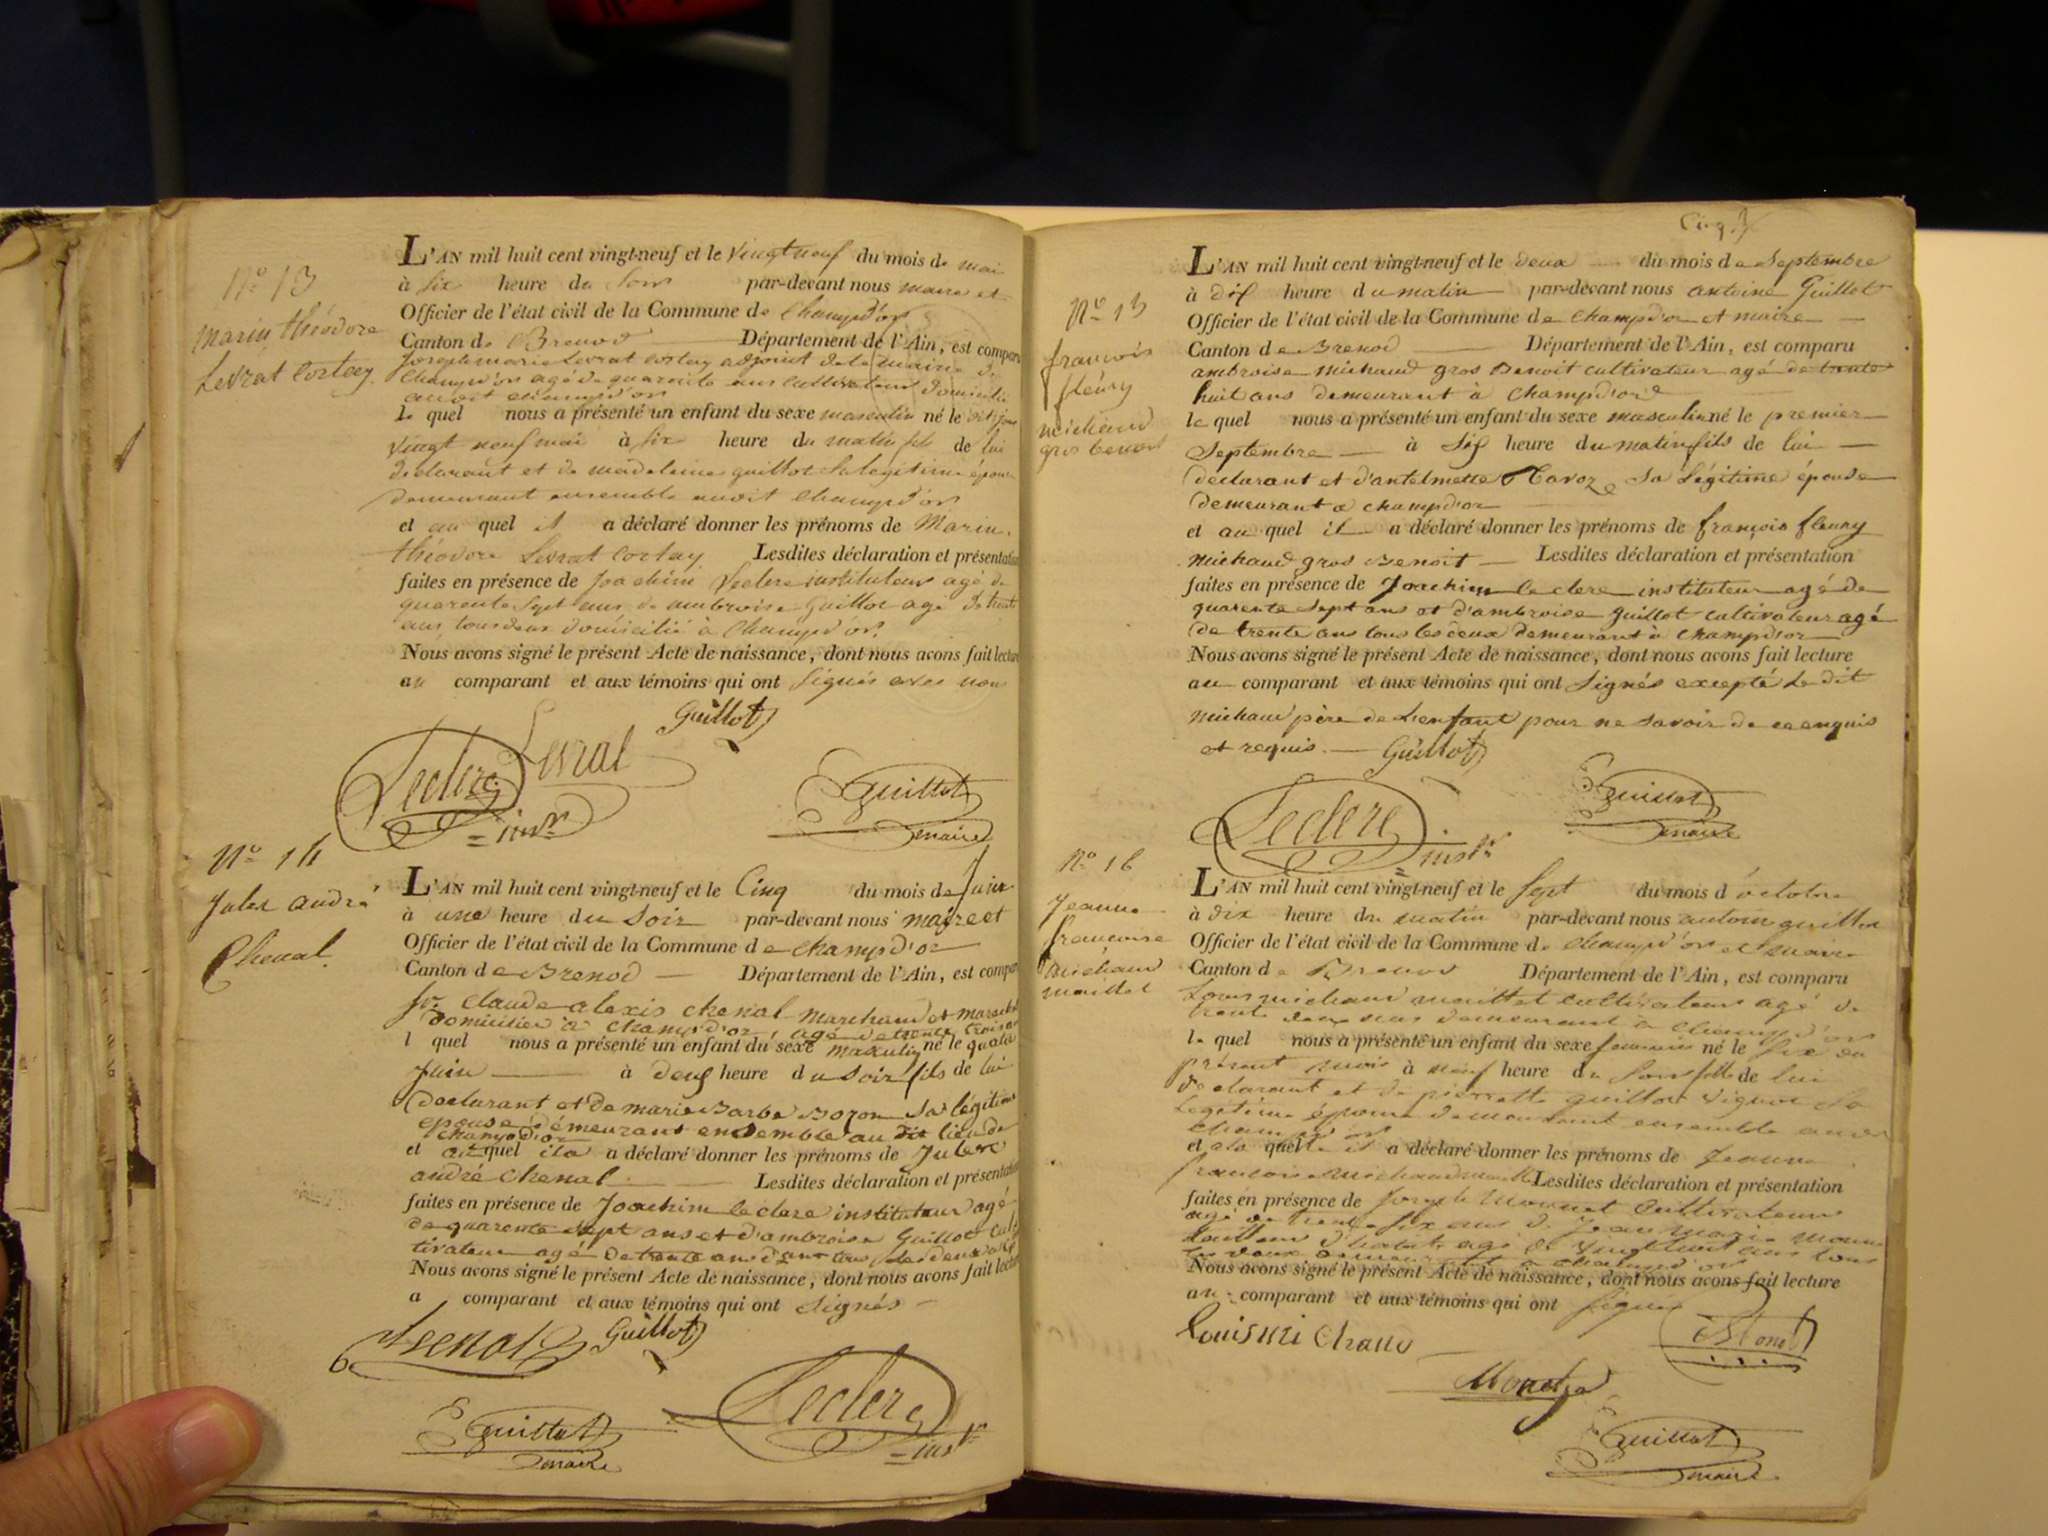 N° 13
Marin théodore
Levrat Cortey
L'AN mil huit cent vingt-neuf et le vingt neuf du mois de mai
à six heure du soir par-devant nous maire et
Officier de l'état civil de la Commune de Champd'or
Canton de Brenod Département de l'Ain, est comparu
Joseph marie Levrat cortey adjoint de la mairie de
Champd'or agé de quarante ans cultivateur domicilié
audit champd'or
le quel nous a présenté un enfant du sexe masculin né le dit jour
vingt neuf mai à six heure du matin fils de lui
declarant et de madeleine guillot sa legitime épouse
demeurant ensemble audit Champd'or
et au quel il a déclaré donner les prénoms de Marin
théodore Levrat Cortay Lesdites déclaration et présentation
faites en présence de Joachim Leclere instituteur agé de
quarente sept ans, de ambroise Guillot agé de trente
ans tous deux domicilié à Champd'or.
Nous avons signé le présent Acte de naissance, dont nous avons fait lecture
au comparant et aux témoins qui ont signés avec nous
Guillot
Levrat
Leclere
= instr
Guillot
maire
N° 14
Jules andré
Chenal.
L'AN mil huit cent vingt-neuf et le Cinq du mois de Juin
à une heure du soir par-devant nous maire et
Officier de l'état civil de la Commune de champd'or
Canton de Brenod Département de l'Ain, est comparu
Sr. Claude alexis chenal marchand et marechal
domicilier à champd'or, agé de trente trois ans
l quel nous a présenté un enfant du sexe masculin né le quatre
Juin à deux heure du soir fils de lui
declarant et de marie Barbe Bozon sa légitime
epouse demeurant ensemble au dit lieu de
champd'or
et au quel ila a déclaré donner les prénoms de Jules
andré chenal Lesdites déclaration et présentation
faites en présence de Joachim leclere instituteur agé
de quarente sept ans et d'ambroise Guillot cul
tivateur agé de trente ans tous les deux
Nous avons signé le présent Acte de naissance, dont nous avons fait lecture
a comparant et aux témoins qui ont signés
Chenal
Guillot
Leclere
= instr
Guillot
maire
Cinq
N° 15
françois
fleury
michaud
gros benoit
L'AN mil huit cent vingt-neuf et le deux du mois de Septembre
à dix heure du matin par-devant nous antoine Guillot
Officier de l'état civil de la Commune de champd'or et maire
Canton de Brenod Département de l'Ain, est comparu
ambroise michaud gros Benoit cultivateur agé de trente
huit ans demeurant à champd'or
le quel nous a présenté un enfant du sexe masculin né le premier
Septembre à dix heure du matin fils de lui
declarant et d'antelmette Tavoz sa légitime épouse
demeurant a champd'or
et au quel il a déclaré donner les prénoms de françois fleury
michaud gros Benoit Lesdites déclaration et présentation
faites en présence de Joachim le clere instituteur agé de
quarente sept ans et d'ambroise guillot cultivateur agé
de trente ans tous les deux demeurant à champd'or
Nous avons signé le présent Acte de naissance, dont nous avons fait lecture
au comparant et aux témoins qui ont signés excepté le dit
michaud père de l'enfant pour ne savoir de ce enquis
et requis. Guillot
Leclere
= instr
Guillot
maire
N° 16
Jeanne
françoise
michaud
maillet
L'AN mil huit cent vingt-neuf et le sept du mois d'octobre
à dix heure du matin par-devant nous antoine guillot
Officier de l'état civil de la Commune de Champd'or et maire
Canton de Brenod Département de l'Ain, est comparu
Louis michaud maillet cultivateur agé de
trente deux ans demeurant à Champd'or
le quel nous a présenté un enfant du sexe feminin né le six du
présent mois à neuf heure du soir fille de lui
declarant et de pierrette guillot sa
legitime épouse demeurant ensemble audit
champd'or
et a la quelle il a déclaré donner les prénoms de Jeanne
françoise michaud maillet Lesdites déclaration et présentation
faites en présence de Joseph Cultivateur
agé de trente six ans de Jean Marie
agé de vingt huit ans tous
les deux demeurant à champd'or
Nous avons signé le présent Acte de naissance, dont nous avons fait lecture
au comparant et aux témoins qui ont signés
Louis mi chaud
Monet
Guillot
maire